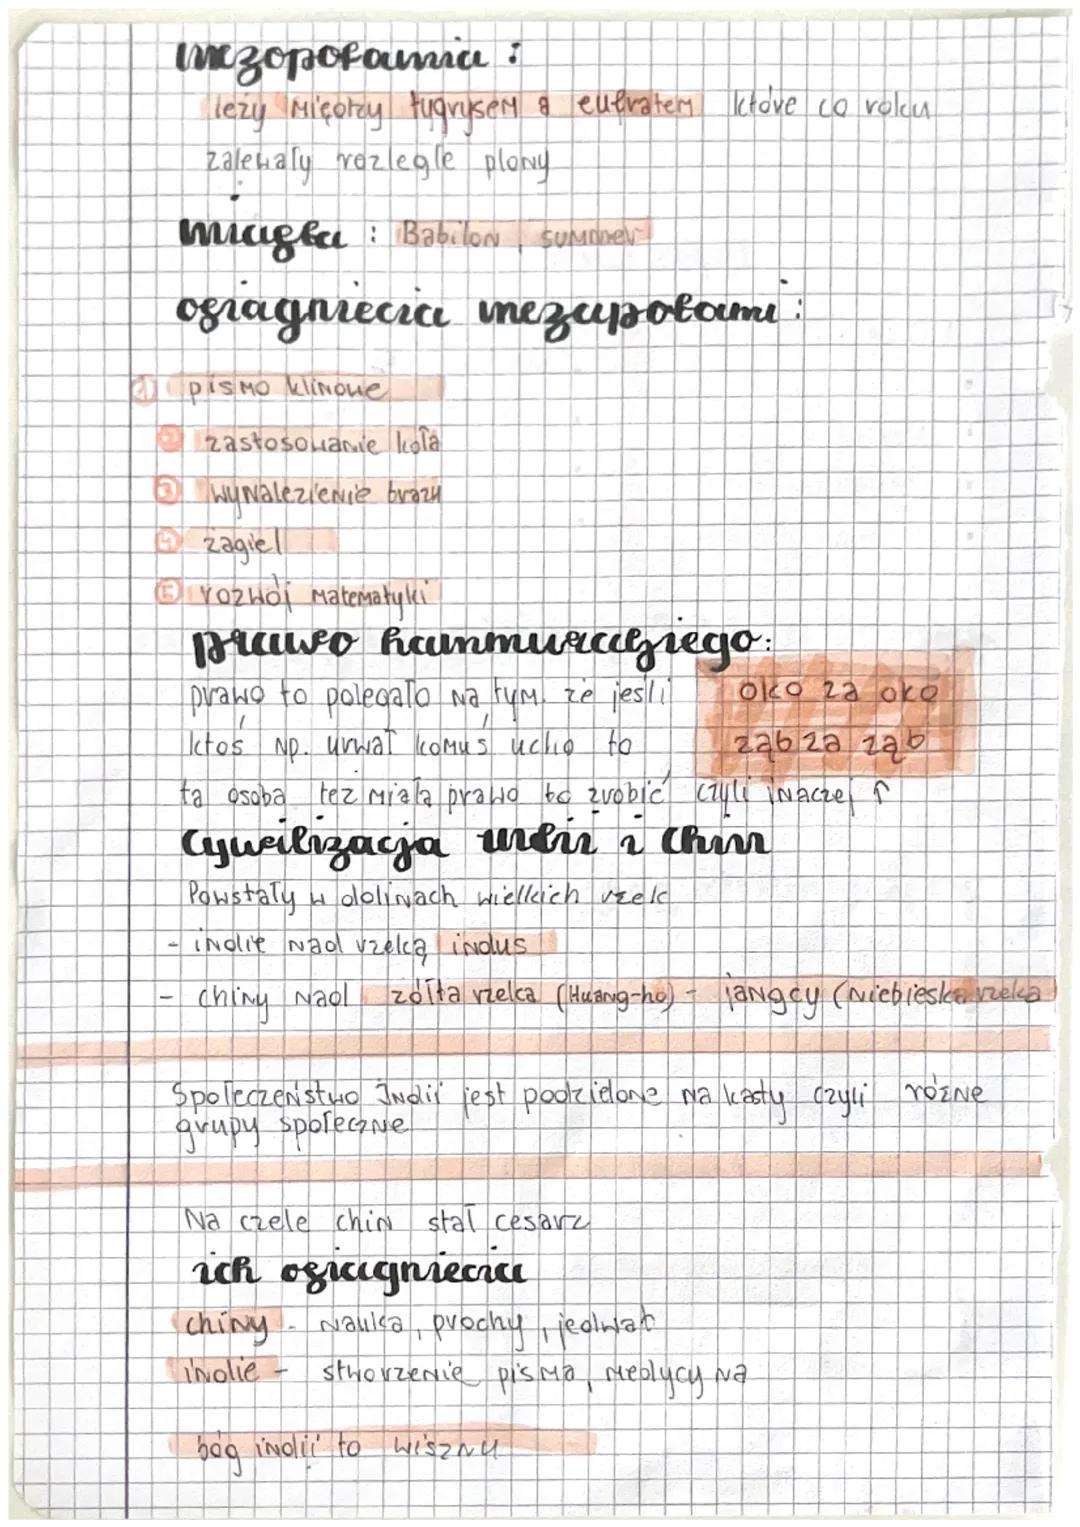 mezopotamia :
leży między tygrysem a eufratem które co roku
zalewały rozległe plony
miasta : Babilon, summer
osiągniecia mezapotami :
1 pismo klinowe
2 zastosowanie koła
3 wynalezienie brązu
4 żagiel
5 rozwój matematyki
prawo hammurabiego:
prawo to polegało na tym, że jeśli
oko za oko
ktoś np. urwał komuś ucho to
ząb za ząb
ta osoba też miała prawo to zrobić czyli inaczej ↑
cywilizacja indii i chin
Powstały w dolinach wielkich rzek
- indie nad rzeką indus
- chiny nad żółta rzeka (Huang-ho) - jangcy (Niebieska rzeka
Społeczeństwo Indii jest podzielone na kasty czyli różne
grupy społeczne
Na czele chin stał cesarz
ich osiągniecia
chiny - nauka, prochy, jedwab
indie - stworzenie pisma, medycy na
bóg indii to wisznu